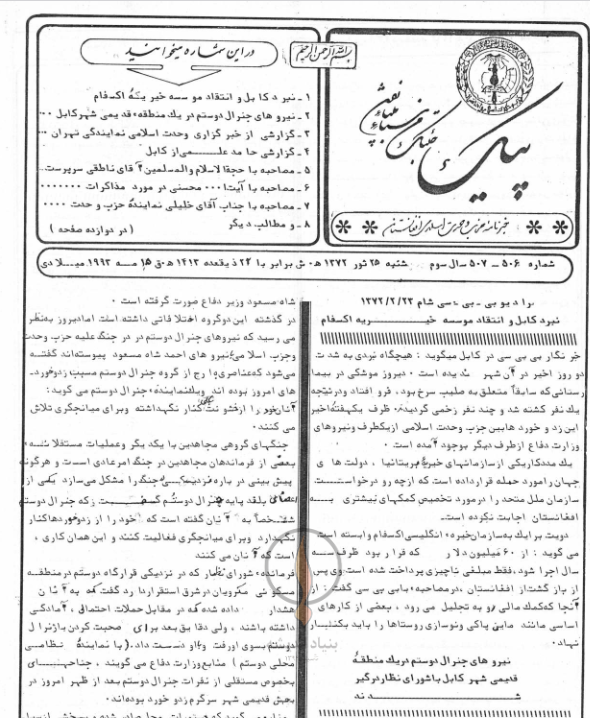 بسم الله الرحمن الرحیم
پیک
خبرنامه حزب وحدت اسلامی افغانستان
در این شماره میخوانید
۱ ـ نبرد کابل و انتقاد موسسه خیریهٔ اکسفام
۲ ـ نیروهای جنرال دوستم در یک منطقهٔ قدیمی شهر کابل ۰۰۰
۳ ـ گزارشی از خبرگزاری وحدت اسلامی نمایندگی تهران ۰۰۰
۴ ـ گزارشی حامد علمی از کابل
۵ ـ مصاحبه با حجةالاسلام والمسلمین آقای ناطقی سرپرست۰۰
۶ ـ مصاحبه با آیتا۰۰۰ محسنی در مورد مذاکرات ۰۰۰۰۰۰۰
۷ ـ مصاحبه با جناب آقای خلیلی نمایندهٔ حزب وحدت ۰۰۰۰
۸ ـ و مطالب دیگر
( در دوازده صفحه )
شماره ۵۰۶ ـ ۵۰۷ سال سوم شنبه ۲۵ ثور ۱۳۷۲ هـ ش برابر با ۲۴ ذیقعده ۱۴۱۳ هـ ق ۱۵ مه ۱۹۹۳ میلادی
رادیو بی ـ بی ـ سی شام ۱۳۷۲/۲/۲۳
نبرد کابل و انتقاد موسسه خیریه اکسفام
خبرنگار بی بی سی در کابل میگوید : هیچگاه نبردی به شدت
دو روز اخیر در آن شهر ندیده است ۰ دیروز موشکی در بیما
رستانی که سابقاً متعلق به صلیب سرخ بود ، فرو افتاد و درنتیجه
یک نفر کشته شد و چند نفر زخمی گردیدند۰ ظرف یکهفتهٔ اخیر
این زد و خورد ها بین حزب وحدت اسلامی ازیکطرف ونیروهای
وزارت دفاع از طرف دیگر بوجود آمده است ۰
یک مددکار یکی از سازمانهای خیریهٔ بریتانیا ، دولت های
جهان را مورد حمله قرار داده است که از چه رو درخواست
سازمان ملل متحد را در مورد تخصیص کمکهای بیشتری به
افغانستان اجابت نکرده است۰
دویت برایک به سازمان خیریهٔ انگلیسی اکسفام وابسته است
می گوید : از ۶۰ میلیون دلار که قرار بود ظرف سه
سال اجرا شود ، فقط مبلغی ناچیزی پرداخت شده است وی پس
از بازگشت از افغانستان ، در مصاحبه با بی بی سی گفت : از
آنجا که کمک مالی رو به تحلیل می رود ، بعضی از کارهای
اساسی مانند مایین پاکی ونوسازی روستاها را باید بکنار
نهاد۰
نیرو های جنرال دوستم دریک منطقهٔ
قدیمی شهر کابل با شورای نظار درگیر
شدند
شاه مسعود وزیر دفاع صورت گرفته است ۰
در گذشته این دوگروه اختلافاتی داشته اند امادیروز بهنظر
می رسید که نیروهای جنرال دوستم در در جنگ علیه حزب وحدت
وحزب اسلامی نیرو های احمد شاه مسعود پیوسته‌اند گفته
می‌شود که عناصری خارج از گروه جنرال دوستم مسبب زدوخورد
های امروز بوده اند ونمایندهٔ جنرال دوستم می گوید :
آنان خود را از خشونت کنار نگهداشته وبرای میانجیگری تلاش
می کنند ۰
جنگهای گروهی مجاهدین با یکدیگر وعملیات مستقلانه
بعضی از فرماندهان مجاهدین در جنگ امر عادی است و هرگونه
پیش بینی در باره نزدیکی جنگ را مشکل می‌سازد یکی از
اعضای بلند پایهٔ جنرال دوستم گفت که جنرال دوستم
شخصاً به آنان گفته است که خود را از زدوخوردها کنار
نگهدارد وبرای میانجیگری فعالیت کنند و این همان کاری ،
است که آنان می کنند
فرماندهٔ شورای نظار که در نزدیکی قرارگاه دوستم درمنطقه
مسکونی مکرویان در شرق استقرار دارد گفت که به آنان
هشدار داده شده که در مقابل حملات احتمالی ، آمادگی
داشته باشند ، ولی دقایق بعد برای صحبت کردن با ژنرال
دوستم بسوی او رفت
محلی دوستم ) منابع وزارت دفاع می گویند ، جناحهای
بخصوص مستقلی از نفرات جنرال دوستم بعد از ظهر امروز در
بخش قدیمی شهر سرگرم زدو خورد بوده‌اند۰